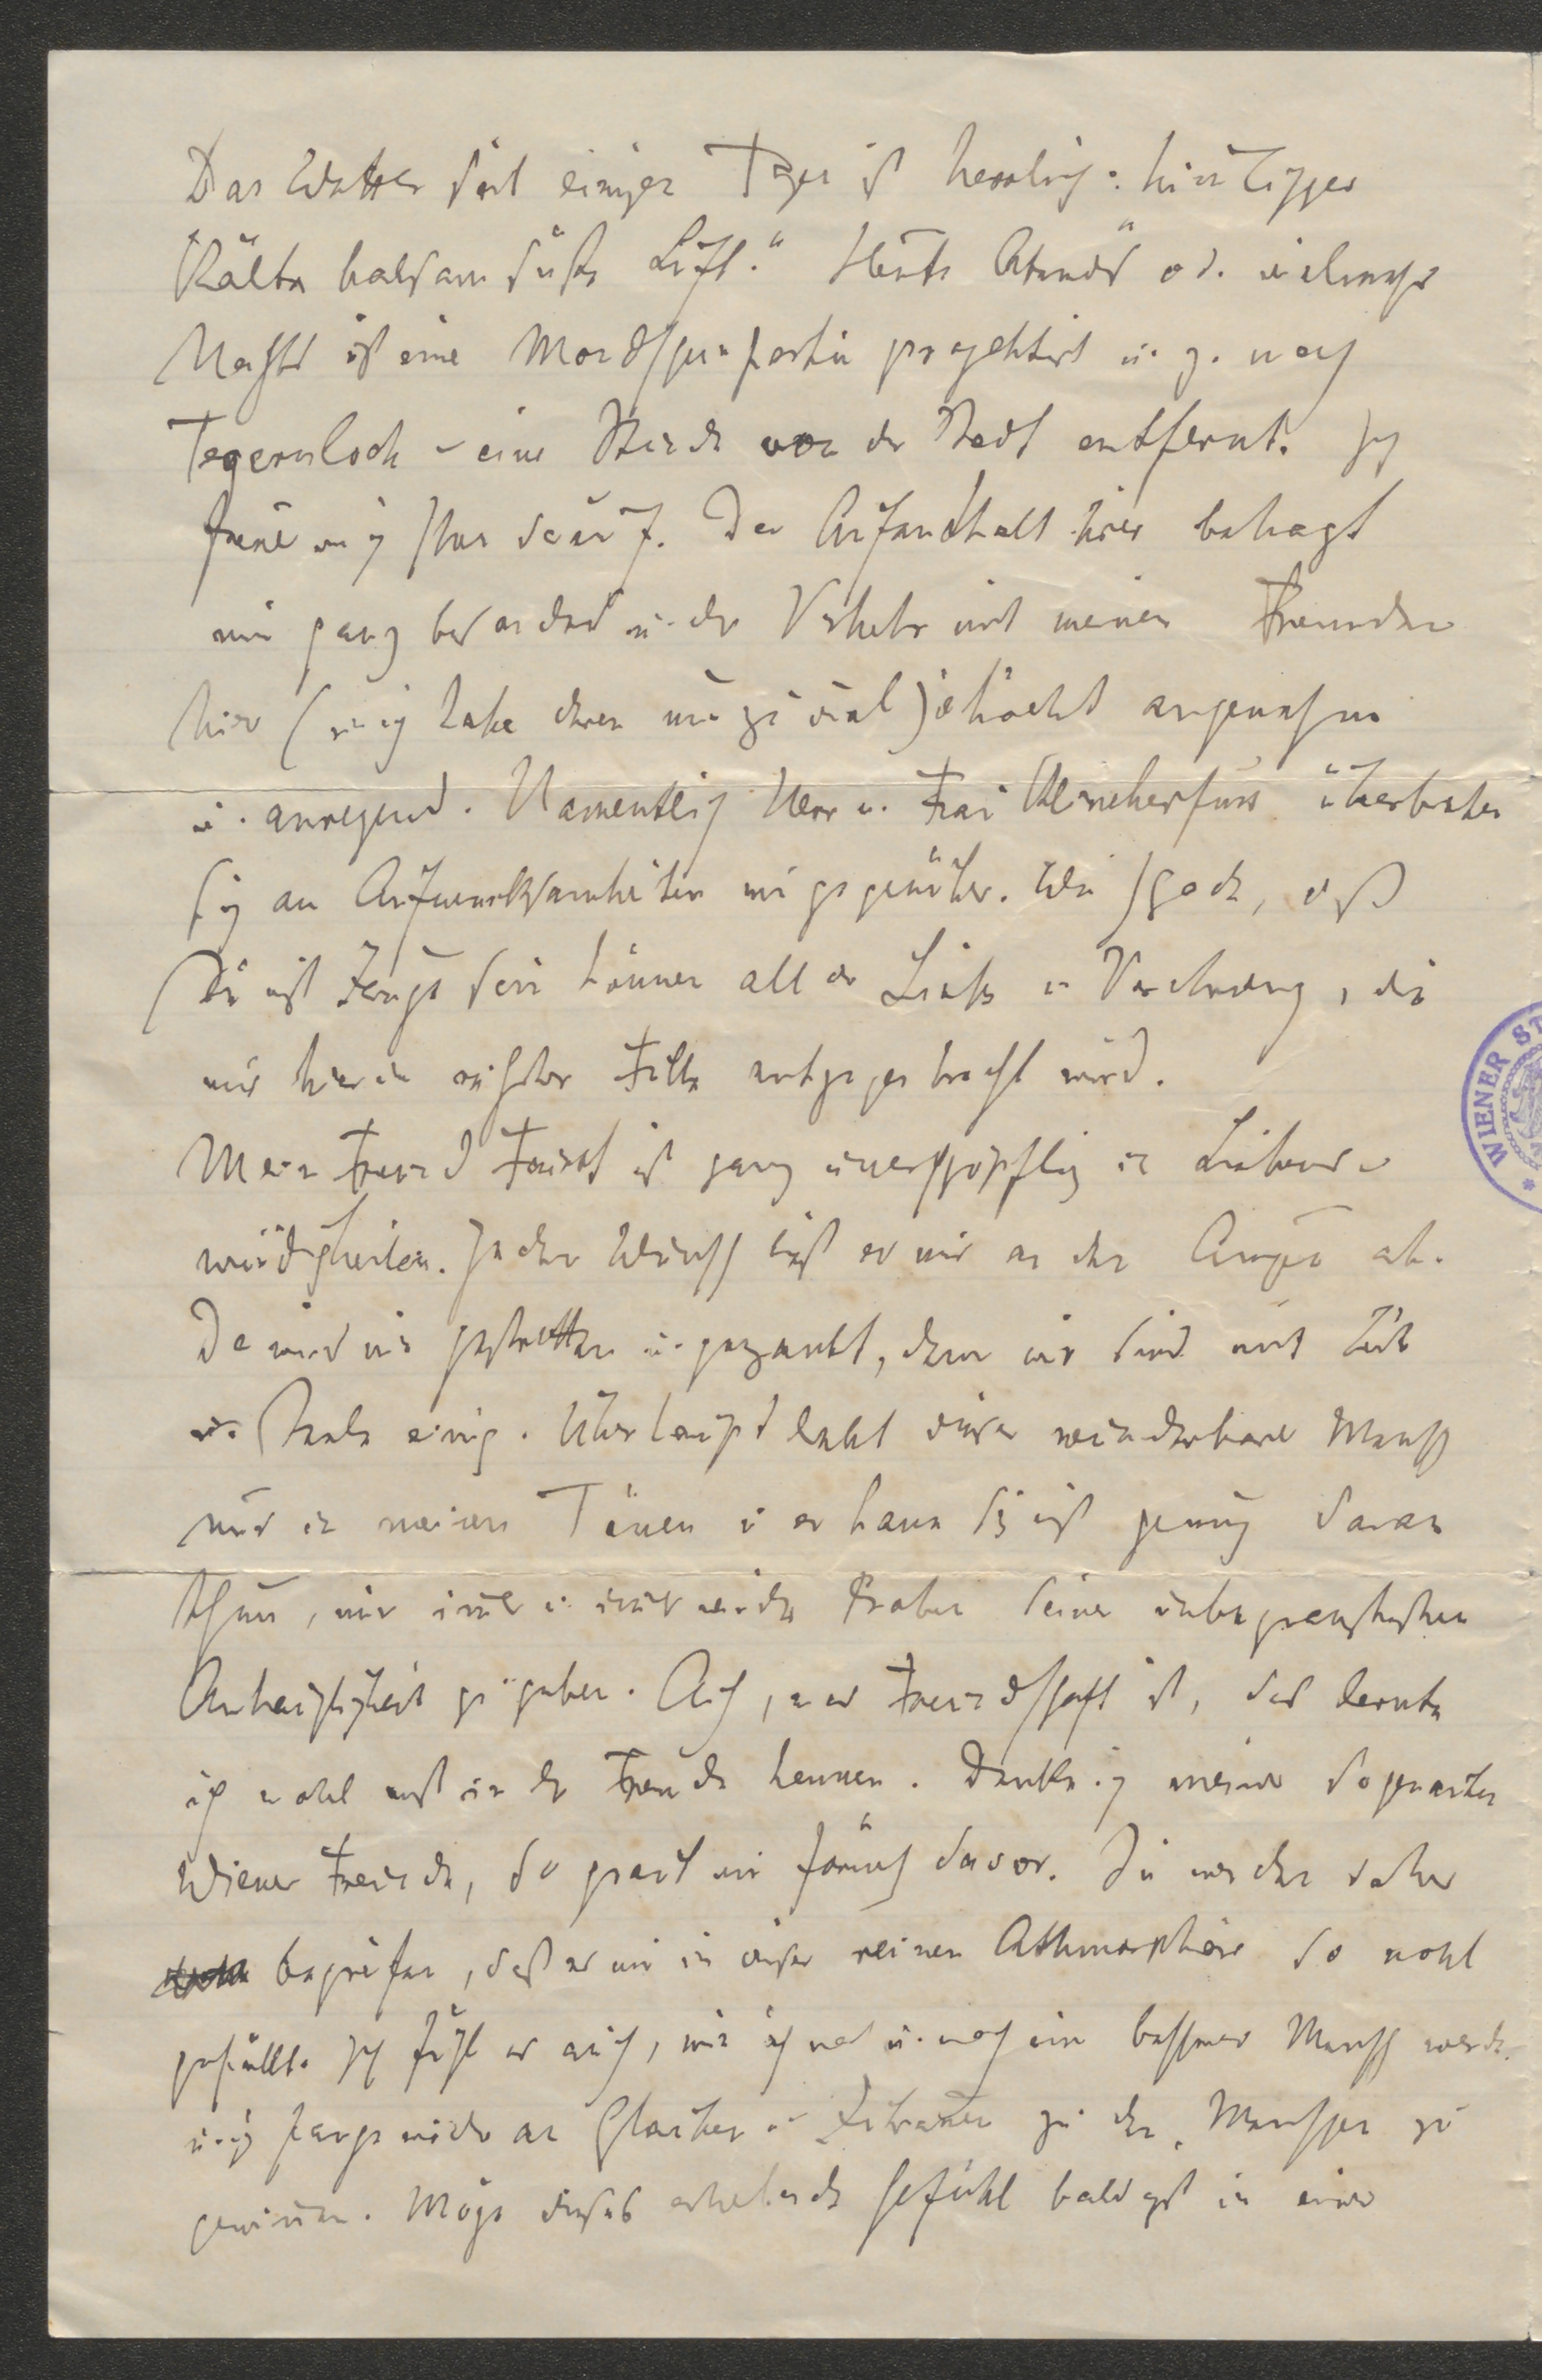 Das Wetter seit einigen Tagen ist herrlich: hin
Kälte balsam süße Luft." Heute Abends od. vielmehr
Nachts ist eine Mordschpartie projektirt u. z. nach
Tegernloch – eine Stunde von der Stadt entfernt. Ich
freue mich schon darauf. Der Aufenthalt hier behagt
mir ganz besonders u. der Verkehr mit meinen Freunden
hier (u. ich habe deren nur zu viel) ist höchst angenehm
u. anregend. Namentlich Herr u. Frau Klinckerfuss überbieten
sich an Aufmerksamkeiten mir gegenüber. Wie schade, daß
Du nicht Zeuge sein können all der Liebe u. Verehrung, die
mir hier in reichster Fülle entgegen bracht wird.
Mein Freund Faisst ist ganz unerschöpflich in Liebens-
würdigkeiten. Jeden Wunsch liest er mir an den Augen ab.
Da wird nie gestritten u. gezankt, denn wir sind mit Leib
u. Seele einig. Überhaupt lebt dieser wunderbare Mensch
nur in meinen Tönen u. er kann sich nicht genug daran
thun, mir immer u. immer wieder Proben seiner unbegrenztesten
Anhänglichkeit zu geben. Ach, was Freundschaft ist, das lernte
ich wohl erst in der Fremde kennen. Denke ich meiner sogenannten
Wiener Freunde, so graut mir förmlich davor. Du werden daher
begreifen, daß es mir in dieser reinen Athmosphäre so wohl
gefällt. Ich fühl es auch, wie ich nach u. nach ein besserer Mensch werde
u. ich fange wieder an Glauben u. Zutrauen zu den Menschen zu
gewinnen. Möge dieses erhebende Gefühl baldigst in einer
WIENER ST